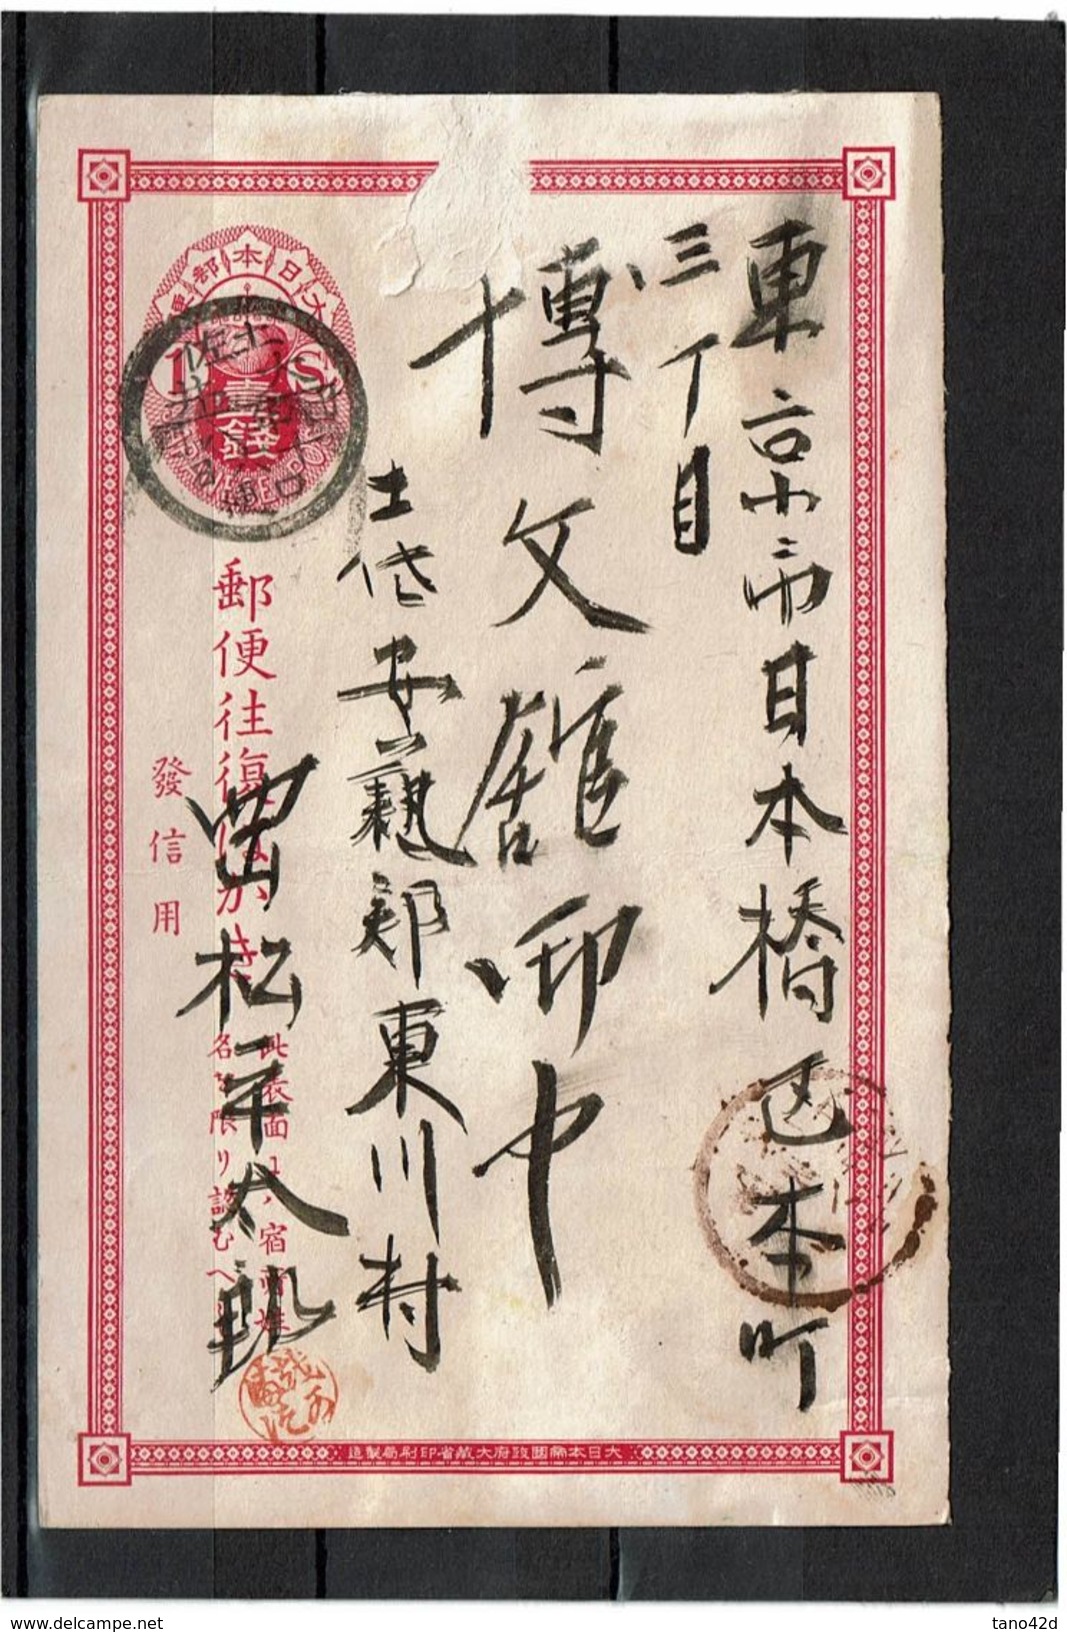 東京市日本橋区本町
三丁目
博文館御中
土佐安藝郡東川村
岡松平太郎
大日本郵便
1 S
壹錢
郵便往復はかき
發信用
此表面には宿所姓
名を限り認むへし
土佐
大日本帝國政府大蔵省印刷局製造
tano42d